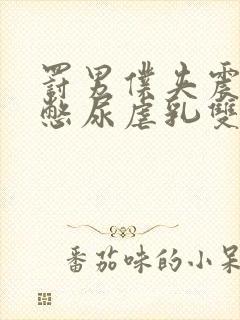 罰男僕失震
憋尿虐乳雙
番茄味的小呆